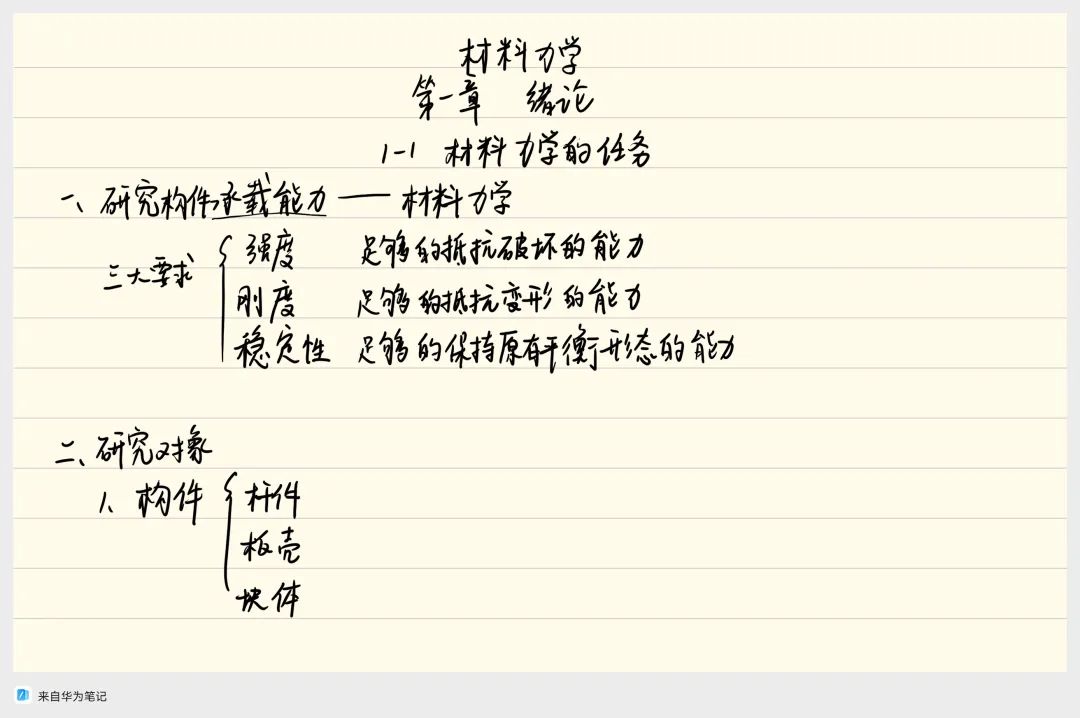 材料力学
第一章 绪论
1-1 材料力学的任务
一、研究构件承载能力——材料力学
三大要求
强度 足够的抵抗破坏的能力
刚度 足够的抵抗变形的能力
稳定性 足够的保持原有平衡形态的能力
二、研究对象
1、构件
杆件
板壳
块体
来自华为笔记